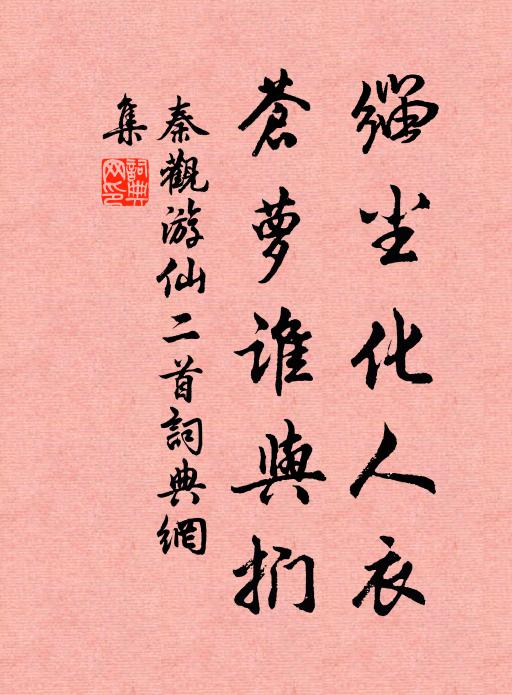 緇尘化人衣
蒼萝誰與捫
秦觀游仙二首詞典網
集
詞典網印